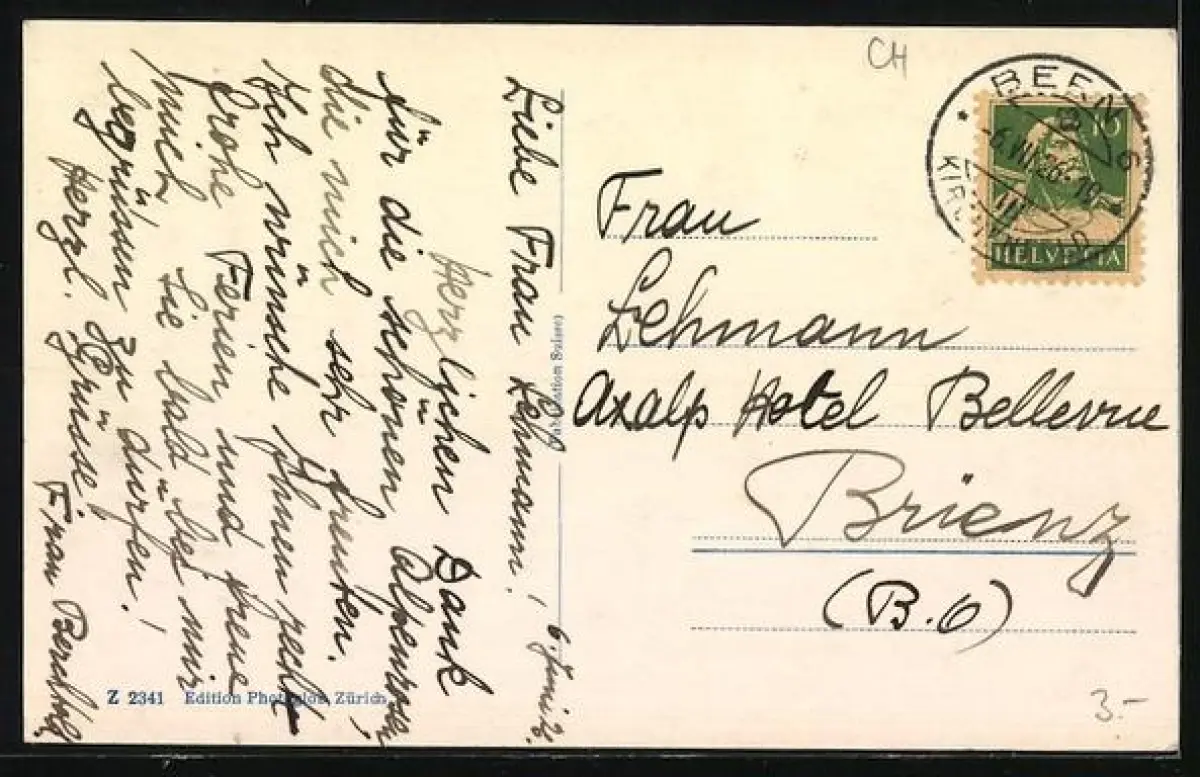 6. Juni 26.
Liebe Frau Lehmann!
Herzlichen Dank
für die schönen Alpenrosen,
die mich sehr freuten.
Ich wünsche Ihnen recht
frohe Ferien und freue
mich Sie bald bei mir
begrüssen zu dürfen!
Herzl. Grüsse!
Frau
Z 2341 Edition Photoglob, Zürich
CH
BERN 6
-6.VII.26.-19
10
HELVETIA
Frau
Lehmann
Axalp Hotel Bellevue
Brienz
(B.O)
3.-